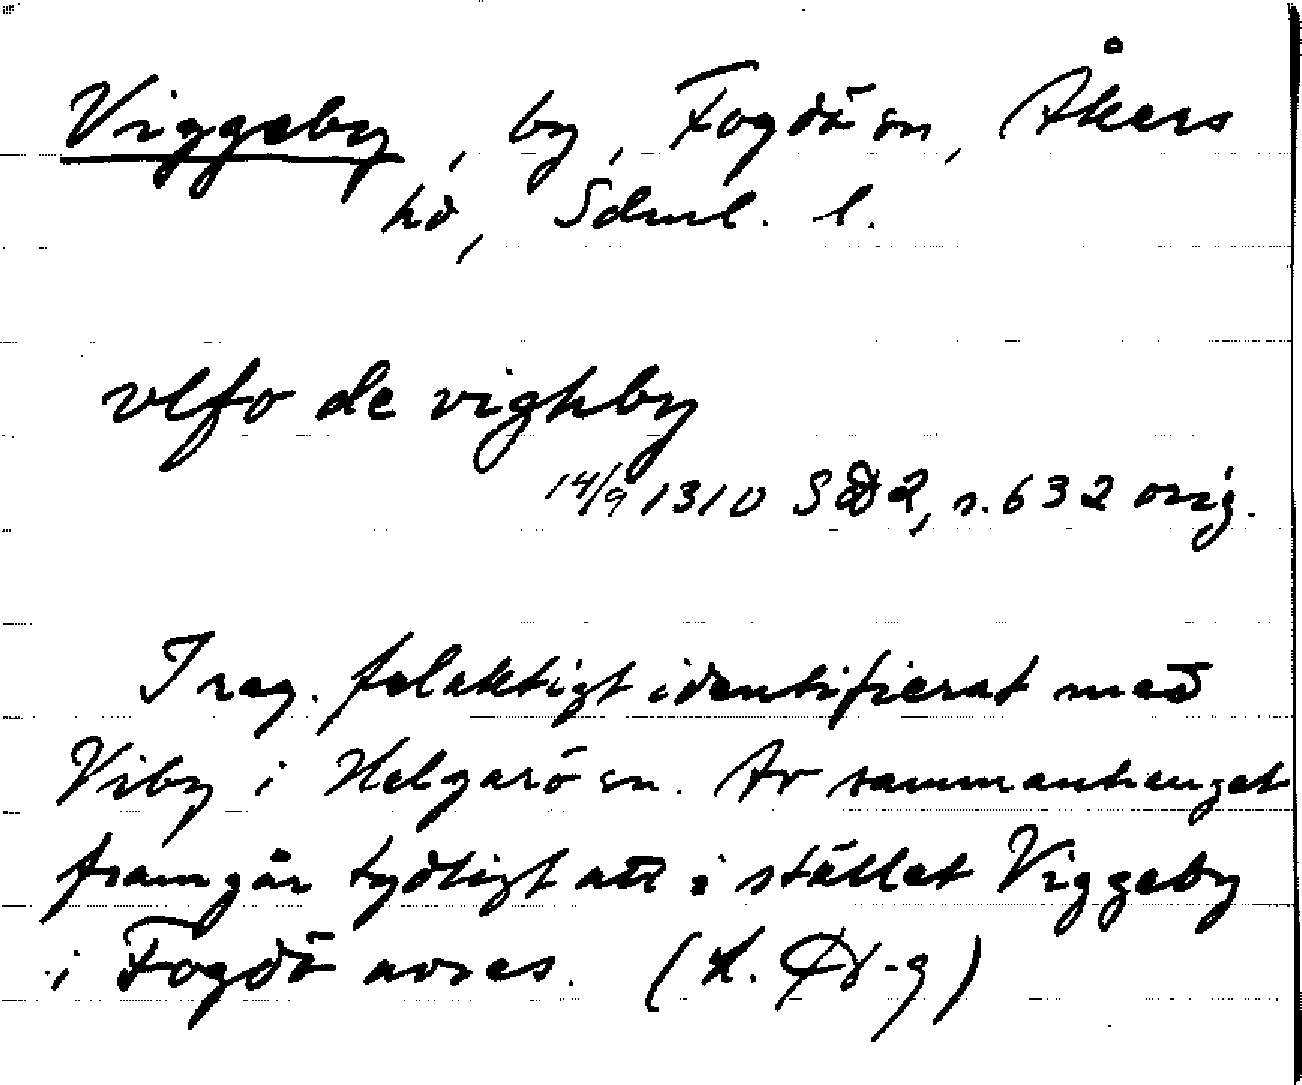 Viggeby, by, Fogdö sn, Åkers
hd, Sdml. l.
vlfo de vighby
14/9 1310 SD 2, s. 632 orig.
I reg. felaktigt identifierat med
Viby i Helgarö sn. Av sammanhanget
framgår tydligt att i stället Viggeby
i Fogdö avses.